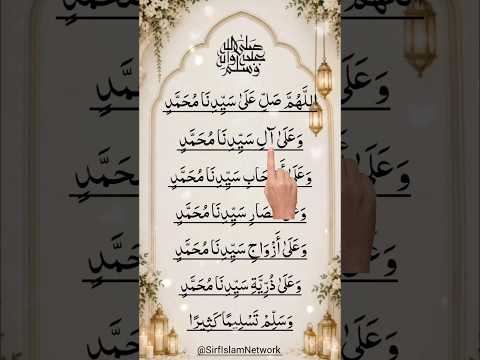 صلى الله عليه وآله وسلم
اللَّهُمَّ صَلِّ عَلَىٰ سَيِّدِنَا مُحَمَّدٍ
وَعَلَىٰ آلِ سَيِّدِنَا مُحَمَّدٍ
وَعَلَىٰ سَيِّدِنَا مُحَمَّدٍ
سَيِّدِنَا مُحَمَّدٍ
وَعَلَىٰ أَزْوَاجِ سَيِّدِنَا مُحَمَّدٍ
وَعَلَىٰ ذُرِّيَّةِ سَيِّدِنَا مُحَمَّدٍ
وَسَلِّمْ تَسْلِيمًا كَثِيرًا
@SirfIslamNetwork